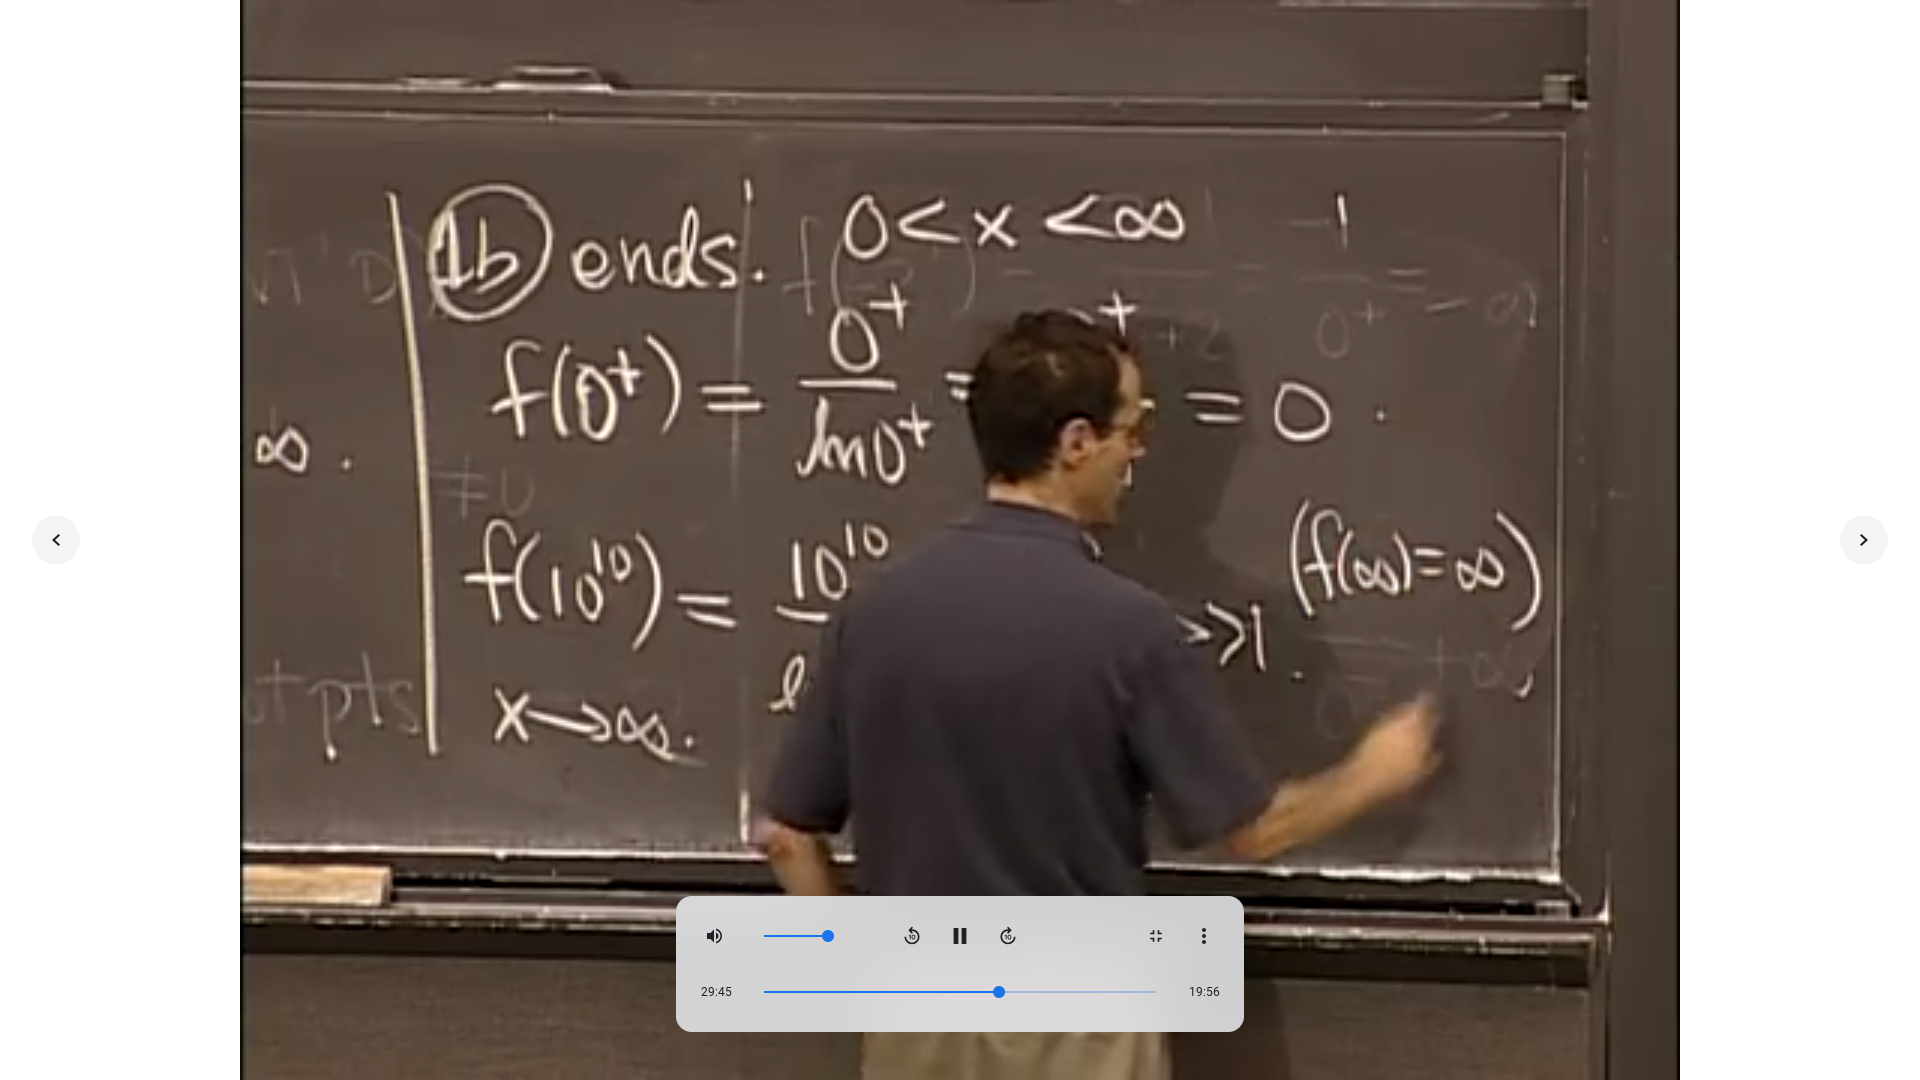 1b ends. 0 < x < ∞
f(0⁺) = 0⁺/ln 0⁺ = = 0.
∞.
f(10¹⁰) = 10¹⁰ >>1. (f(∞)=∞)
x→∞.
pts
29:45
19:56